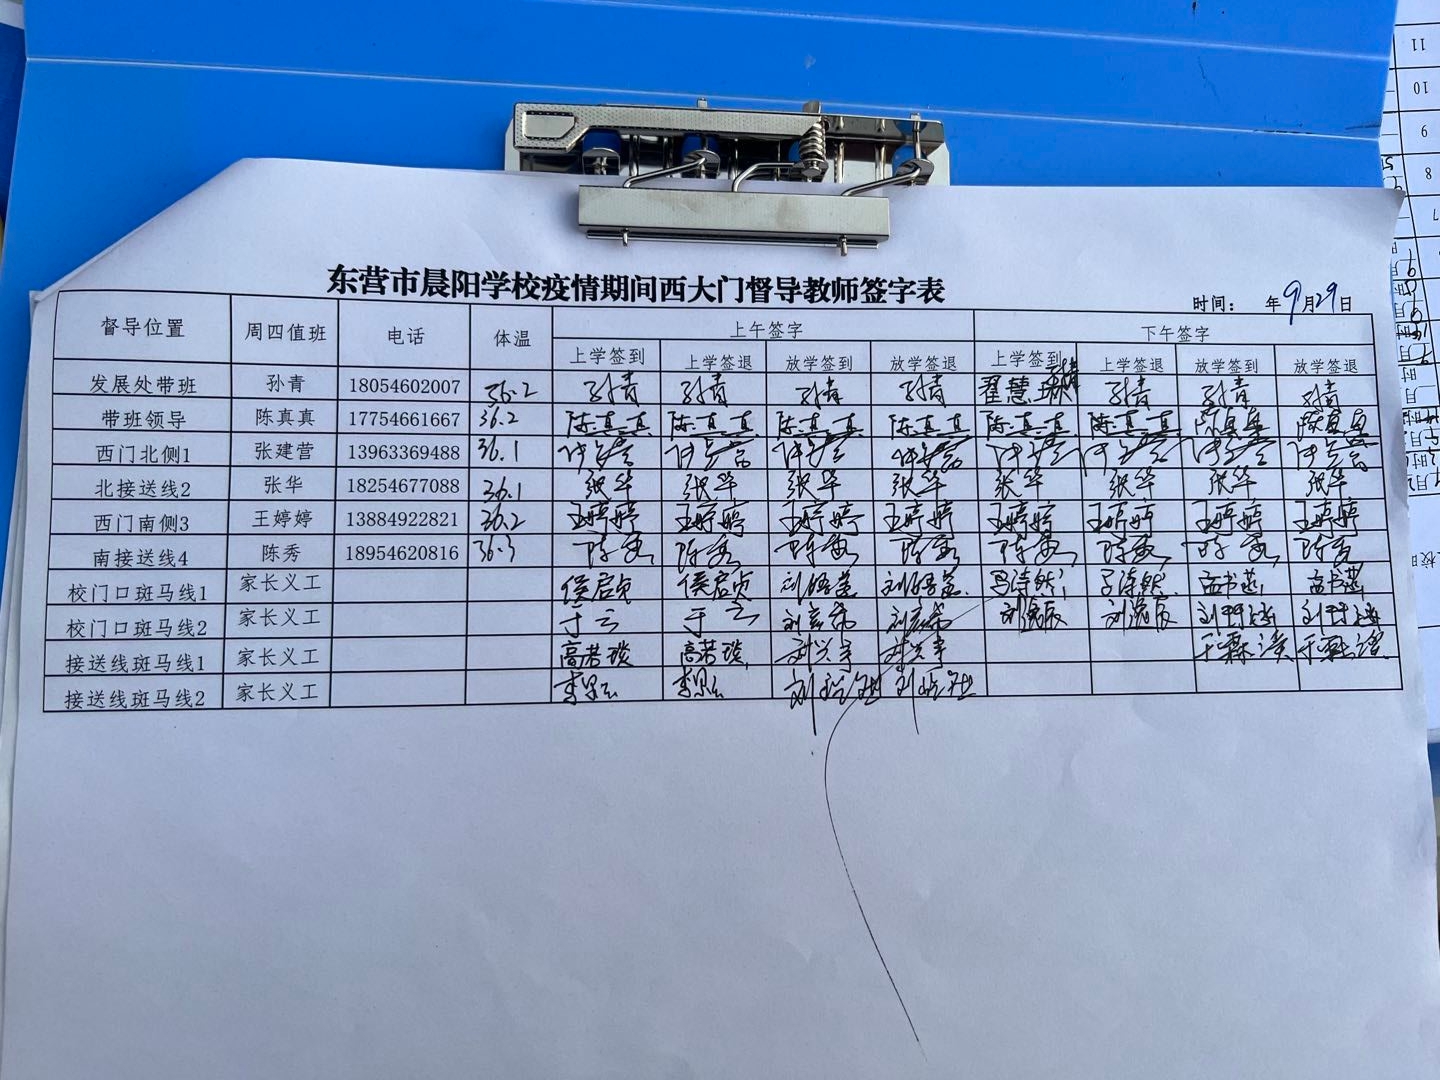 东营市晨阳学校疫情期间西大门督导教师签字表
时间： 年9月29日
督导位置 周四值班 电话 体温 上午签字 下午签字
上学签到 上学签退 放学签到 放学签退 上学签到 上学签退 放学签到 放学签退
发展处带班 孙青 18054602007 36.2 孙青 孙青 孙青 孙青 孙青 孙青 孙青
带班领导 陈真真 17754661667 36.2 陈真真 陈真真 陈真真 陈真真 陈真真 陈真真 陈真真 陈真真
西门北侧1 张建营 13963369488 36.1
北接送线2 张华 18254677088 36.1 张华 张华 张华 张华 张华 张华 张华 张华
西门南侧3 王婷婷 13884922821 36.2 王婷婷 王婷婷 王婷婷 王婷婷 王婷婷 王婷婷 王婷婷 王婷婷
南接送线4 陈秀 18954620816 36.3 陈秀 陈秀 陈秀 陈秀 陈秀 陈秀 陈秀 陈秀
校门口斑马线1 家长义工 侯启贞 侯启贞
校门口斑马线2 家长义工 于云 于云 刘逸辰 刘逸辰
接送线斑马线1 家长义工 高若璇 高若璇 刘兴宇 刘兴宇
接送线斑马线2 家长义工
11
10
9
8
7